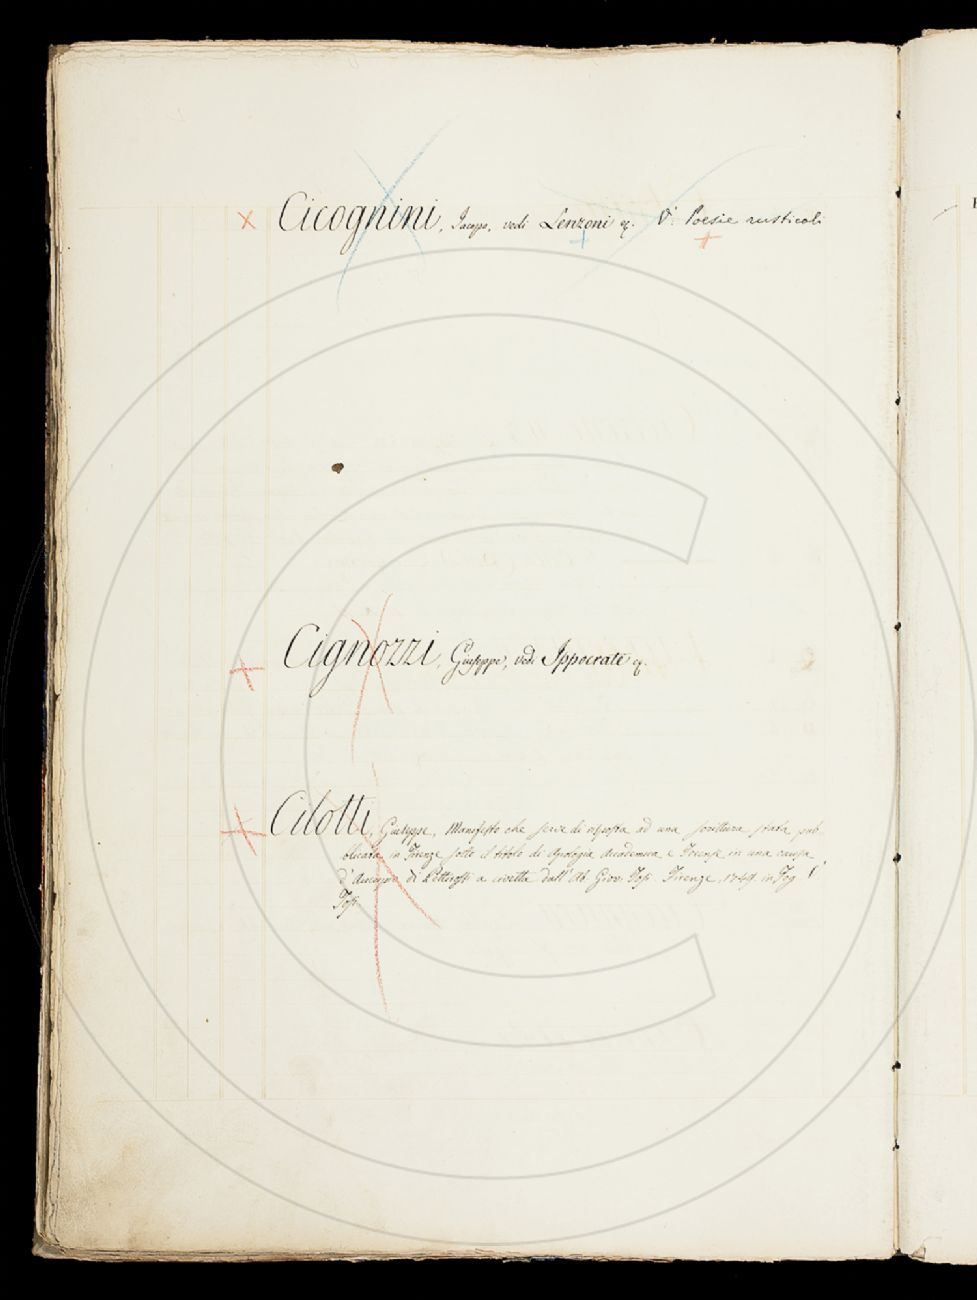 Cicognini, Jacopo, vedi Lenzoni ec. V. Poesie rusticali
Cignozzi, Giuseppe, vedi Ippocrate ec.
Cilotti, Giuseppe, Manifesto che serve di risposta ad una scrittura stata pub
blicata in Firenze sotto il titolo di Apologia Accademica e Forense in una causa
d' di Pettirossi a civetta dall' Ab. Giov. Tosi. Firenze, in Fog
Tosi